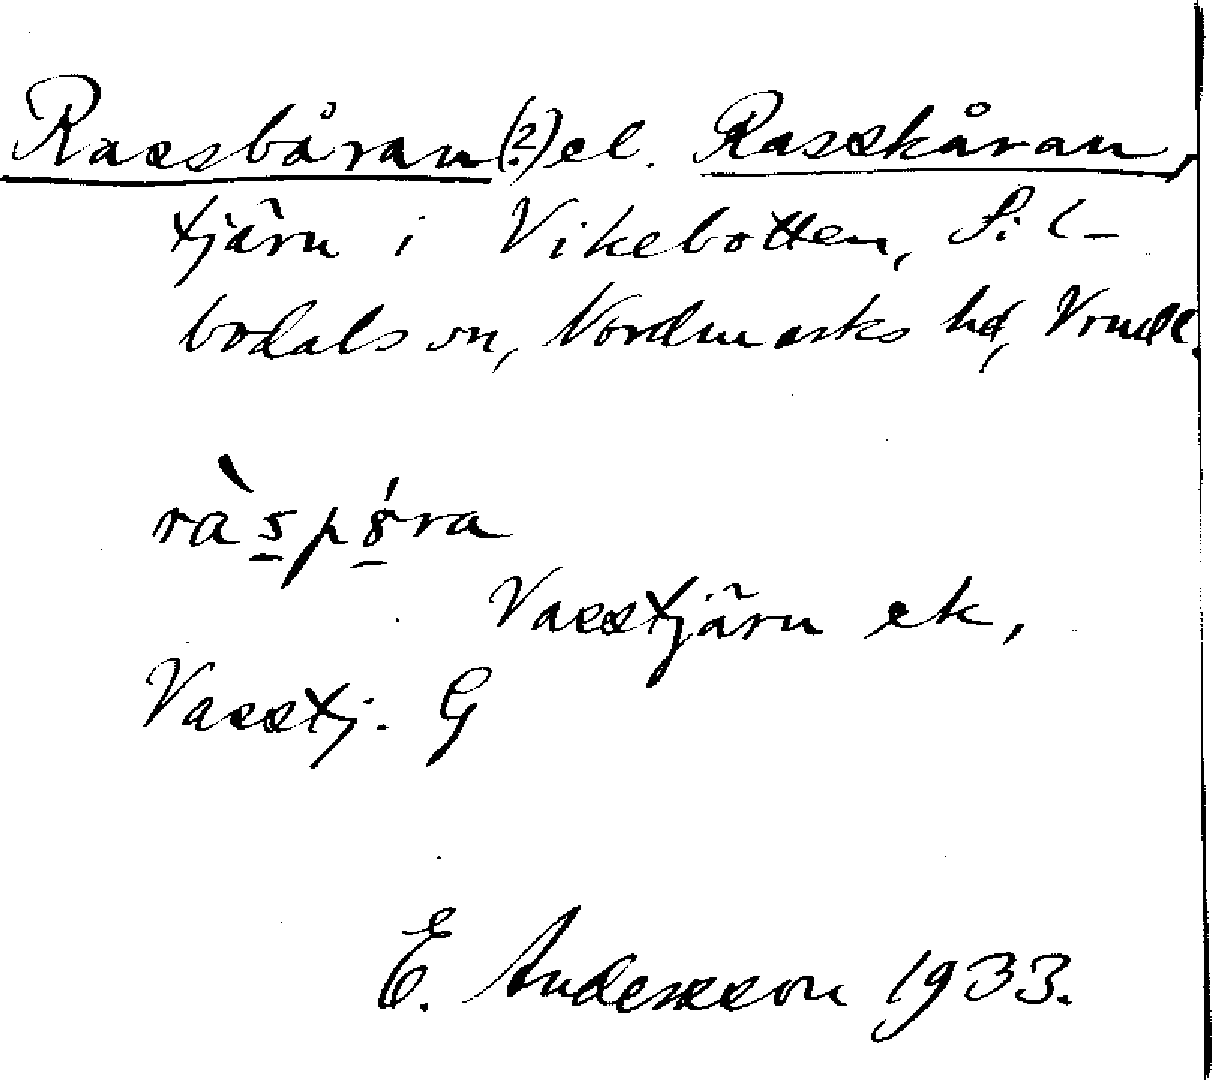 Rassbåran (?) el. Rasskåran,
tjärn i Vikebotten, Sil-
bodals sn, Nordmarks hd, Vrmdl.
ràspóra
Vasstjärn ek,
Vasstj. G
E. Andersson 1933.